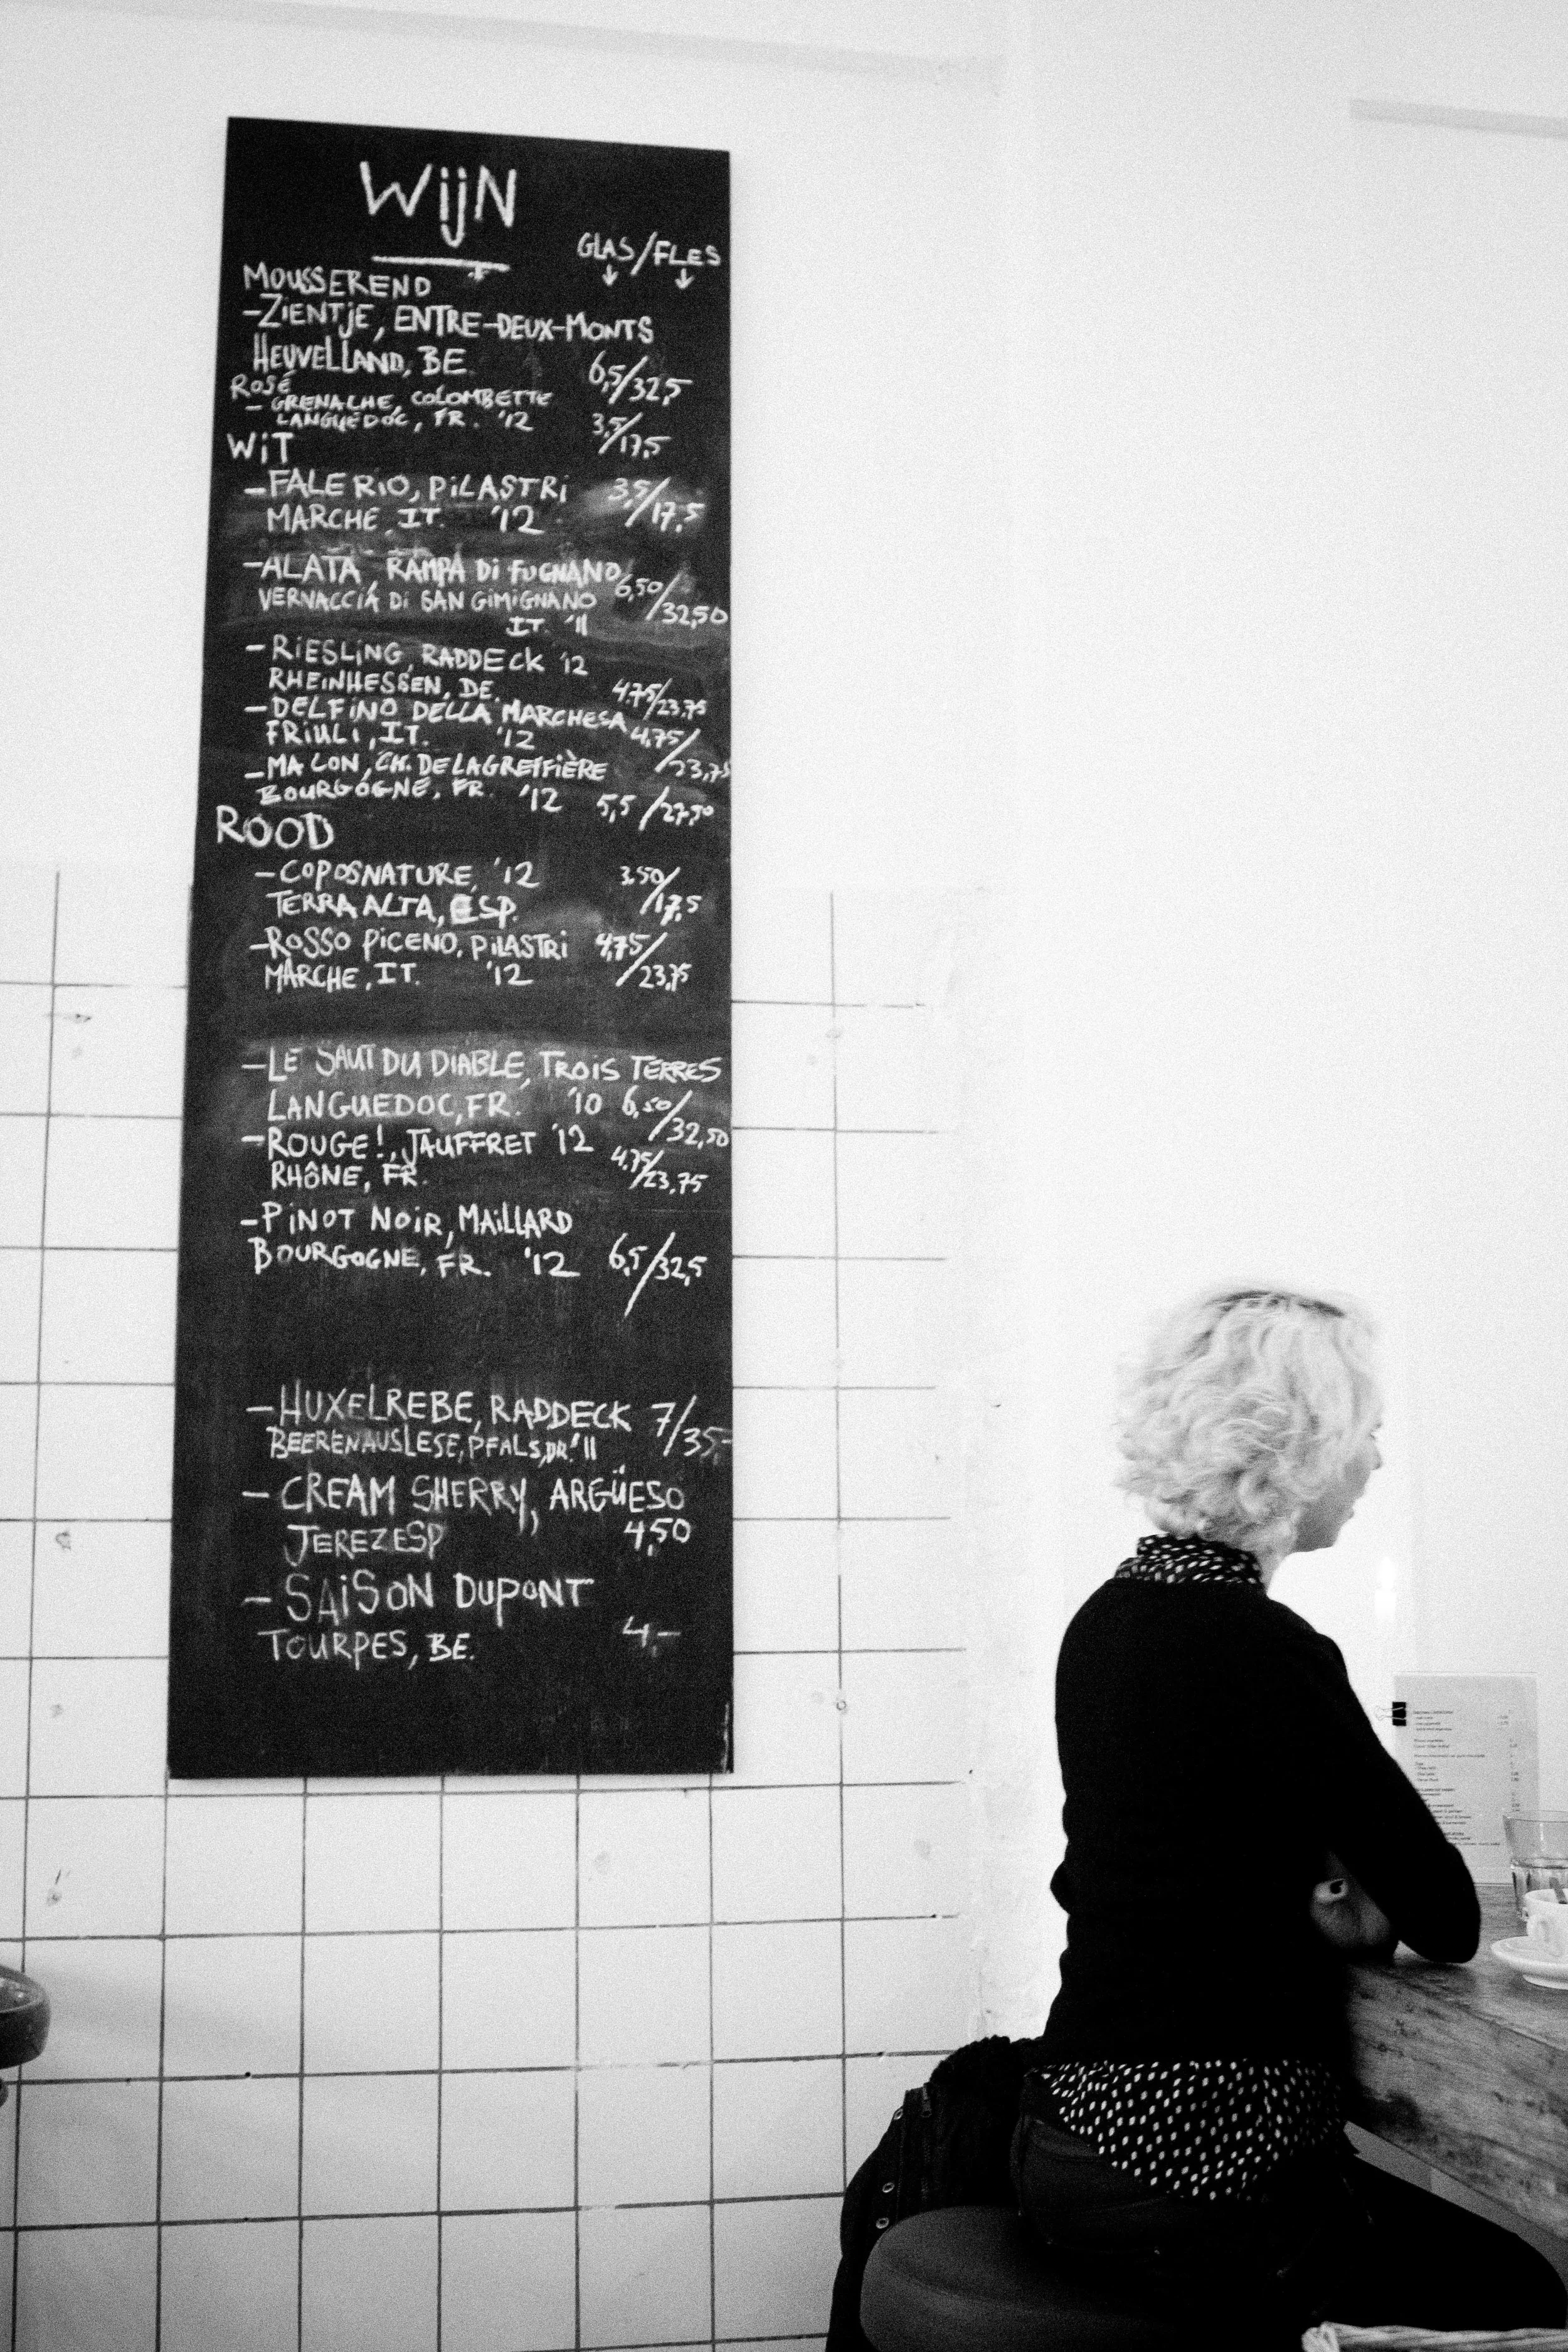 WijN
GLAS/FLES
MOUSSEREND
-ZIENTjE, ENTRE-DEUX-MONTS
HEUVELLAND, BE
6,5/32,5
ROSÉ
- GRENACHE, COLOMBETTE
LANGUEDOC, FR. '12 3,5/17,5
WiT
-FALERIO, PiLASTRi 3,5/17,5
MARCHE, IT. '12
-ALATA, RAMPA Di FUGNANO 6,50/32,50
VERNACCIA Di SAN GiMiGNANO
IT. '11
-RiESLiNG, RADDECK '12
RHEiNHESSEN, DE. 4.75/23,75
-DELFiNO DELLA MARCHESA
FRiULi, IT. '12 4,75/23,75
-MACON, CH. DE LA GREFFIÈRE
BOURGOGNE, FR. '12 5,5/27,50
ROOD
-COPOSNATURE, '12 3.50/17,5
TERRA ALTA, ESP.
-ROSSO PiCENO, PiLASTRi 4,75/23,75
MARCHE, IT. '12
-LE SAUT DU DIABLE, TROiS TERRES
LANGUEDOC, FR. '10 6,50/32,50
-ROUGE!, JAUFFRET '12
RHôNE, FR. 4,75/23,75
-PiNOT NOiR, MAiLLARD
BOURGOGNE, FR. '12 6,5/32,5
-HUXELREBE, RADDECK 7/35,-
BEERENAUSLESE, PFALS, DR.'11
- CREAM SHERRY, ARGÜESO
JEREZ ESP 4,50
- SAiSON DUPONT
TOURPES, BE. 4,-